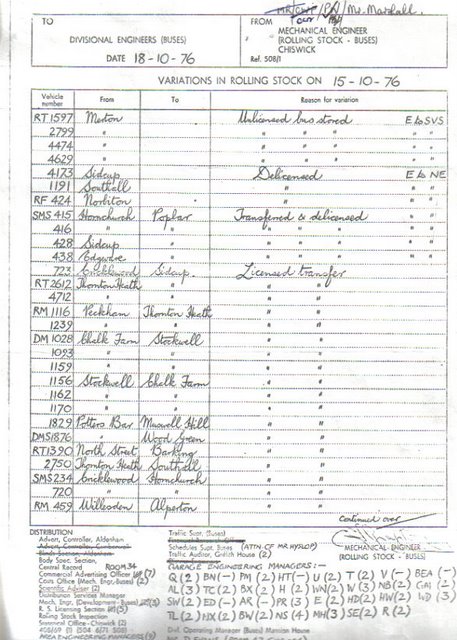 / Mr. Marshall.
TO
DIVISIONAL ENGINEERS (BUSES)
DATE 18-10-76
FROM
MECHANICAL ENGINEER
(ROLLING STOCK - BUSES)
CHISWICK
Ref. 508/1
VARIATIONS IN ROLLING STOCK ON 15-10-76
Vehicle number From To Reason for variation
RT 1597 Merton Unlicensed bus stored E to SVS
2799 " " " " " "
4474 " " " " " "
4629 " " " " " "
4173 Sidcup Delicensed E to NE
1191 Southall " " "
RF 424 Norbiton " " "
SMS 415 Hornchurch Poplar Transferred & delicensed " "
416 " " " " " " "
428 Sidcup " " " " " "
438 Edgware " " " " " "
723 Cricklewood Sidcup. Licensed transfer
RT 2612 Thornton Heath " " "
4712 " " " "
RM 1116 Peckham Thornton Heath " "
1239 " " " "
DM 1028 Chalk Farm Stockwell " "
1093 " " " "
1159 " " " "
1156 Stockwell Chalk Farm " "
1162 " " " "
1170 " " " "
1829 Potters Bar Muswell Hill " "
DMS1876 " Wood Green " "
RT1390 North Street Barking " "
2750 Thornton Heath Southall " "
SMS234 Cricklewood Hornchurch " "
720 " " " "
RM 459 Willesden Alperton " "
continued over
MECHANICAL ENGINEER
(ROLLING STOCK - BUSES)
DISTRIBUTION
Advert. Controller, Aldenham
Body Spec. Section,
Central Record ROOM 34
Commercial Advertising Officer (7)
Costs Office (Mech. Eng.-Buses) (2)
Scientific Adviser (2)
Distribution Services Manager
Mech. Engr. (Development - Buses) (3)
R. S. Licensing Section (3)
Rolling Stock Inspection
Statistical Office - Chiswick (2)
Traffic Supt. (Buses)
Schedules Supt. Buses (ATTN. OF MR HYSLOP)
Traffic Auditor, Griffith House (2)
GARAGE ENGINEERING MANAGERS:-
Q (2) BN (-) PM (2) HT (-) U (2) T (2) V (-) BEA (-)
AL (3) TC (2) BX (2) H (2) WN (2) W (3) NB (2)
SW (2) ED (-) AR (-) PR (3) E (2) HD (2) HW (2) WD (3)
TL (2) NX (2) BW (2) NS (4) MH (3) SE (2) R (2)